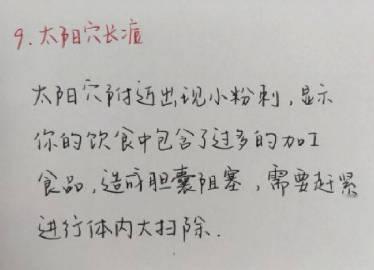 9.太阳穴长痘
太阳穴附近出现小粉刺,显示
你的饮食中包含了过多的加工
食品,造成胆囊阻塞,需要赶紧
进行体内大扫除.